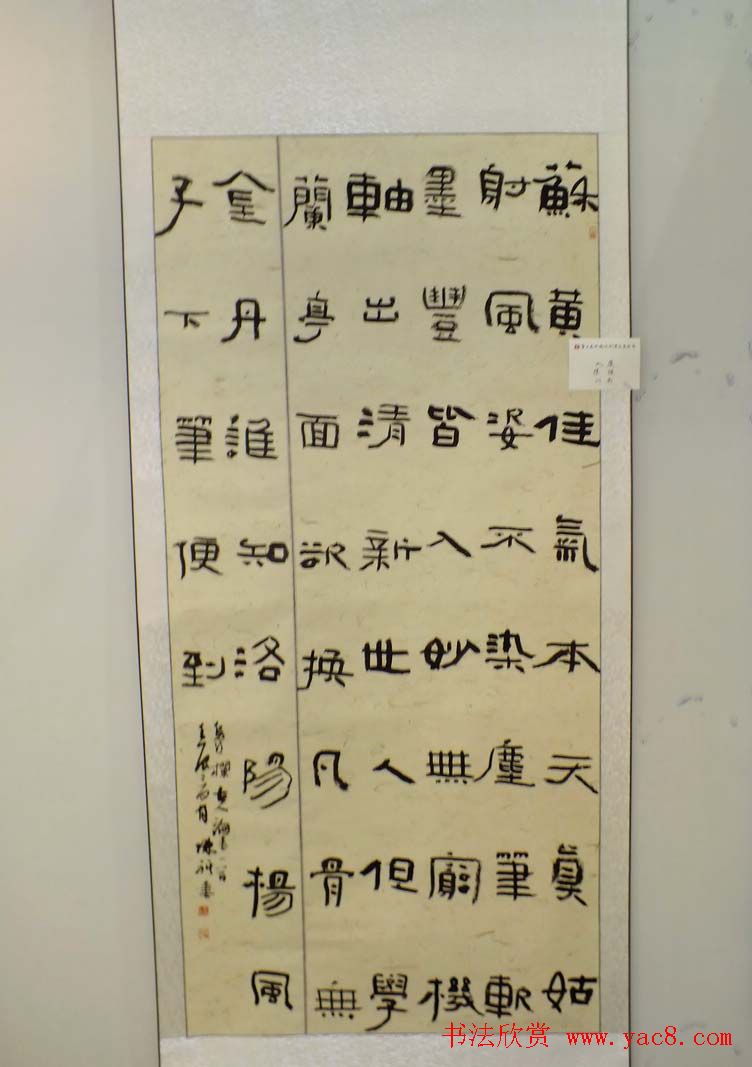 蘇黃佳氣本天真姑
射風姿不染塵筆軟
墨豐皆入妙無窮機
軸出清新世人但學
蘭亭面欲換凡骨無
金丹誰知洛陽楊風
子下筆便到
书法欣赏 www.yac8.com